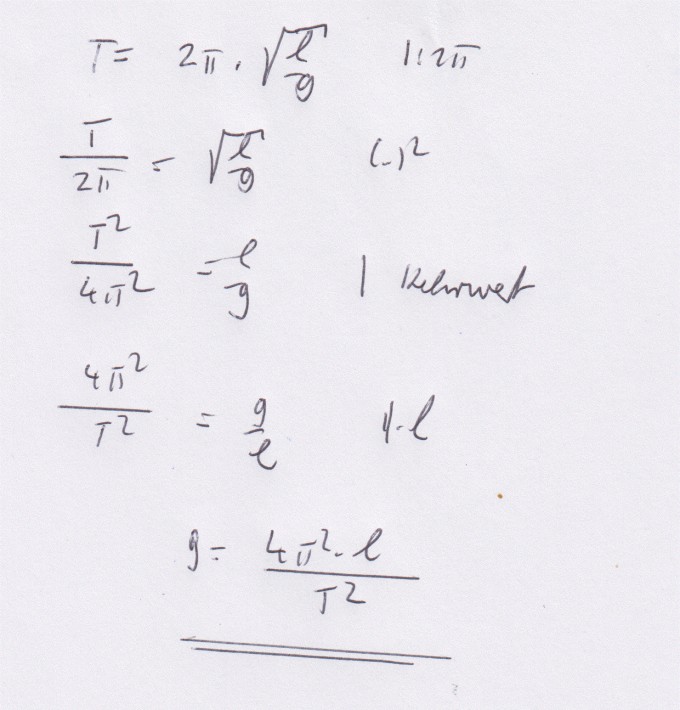 T = 2π · √(l/g) |:2π
T/2π = √(l/g) (-)²
T²/4π² = l/g | Kehrwert
4π²/T² = g/l |·l
g = 4π² · l/T²